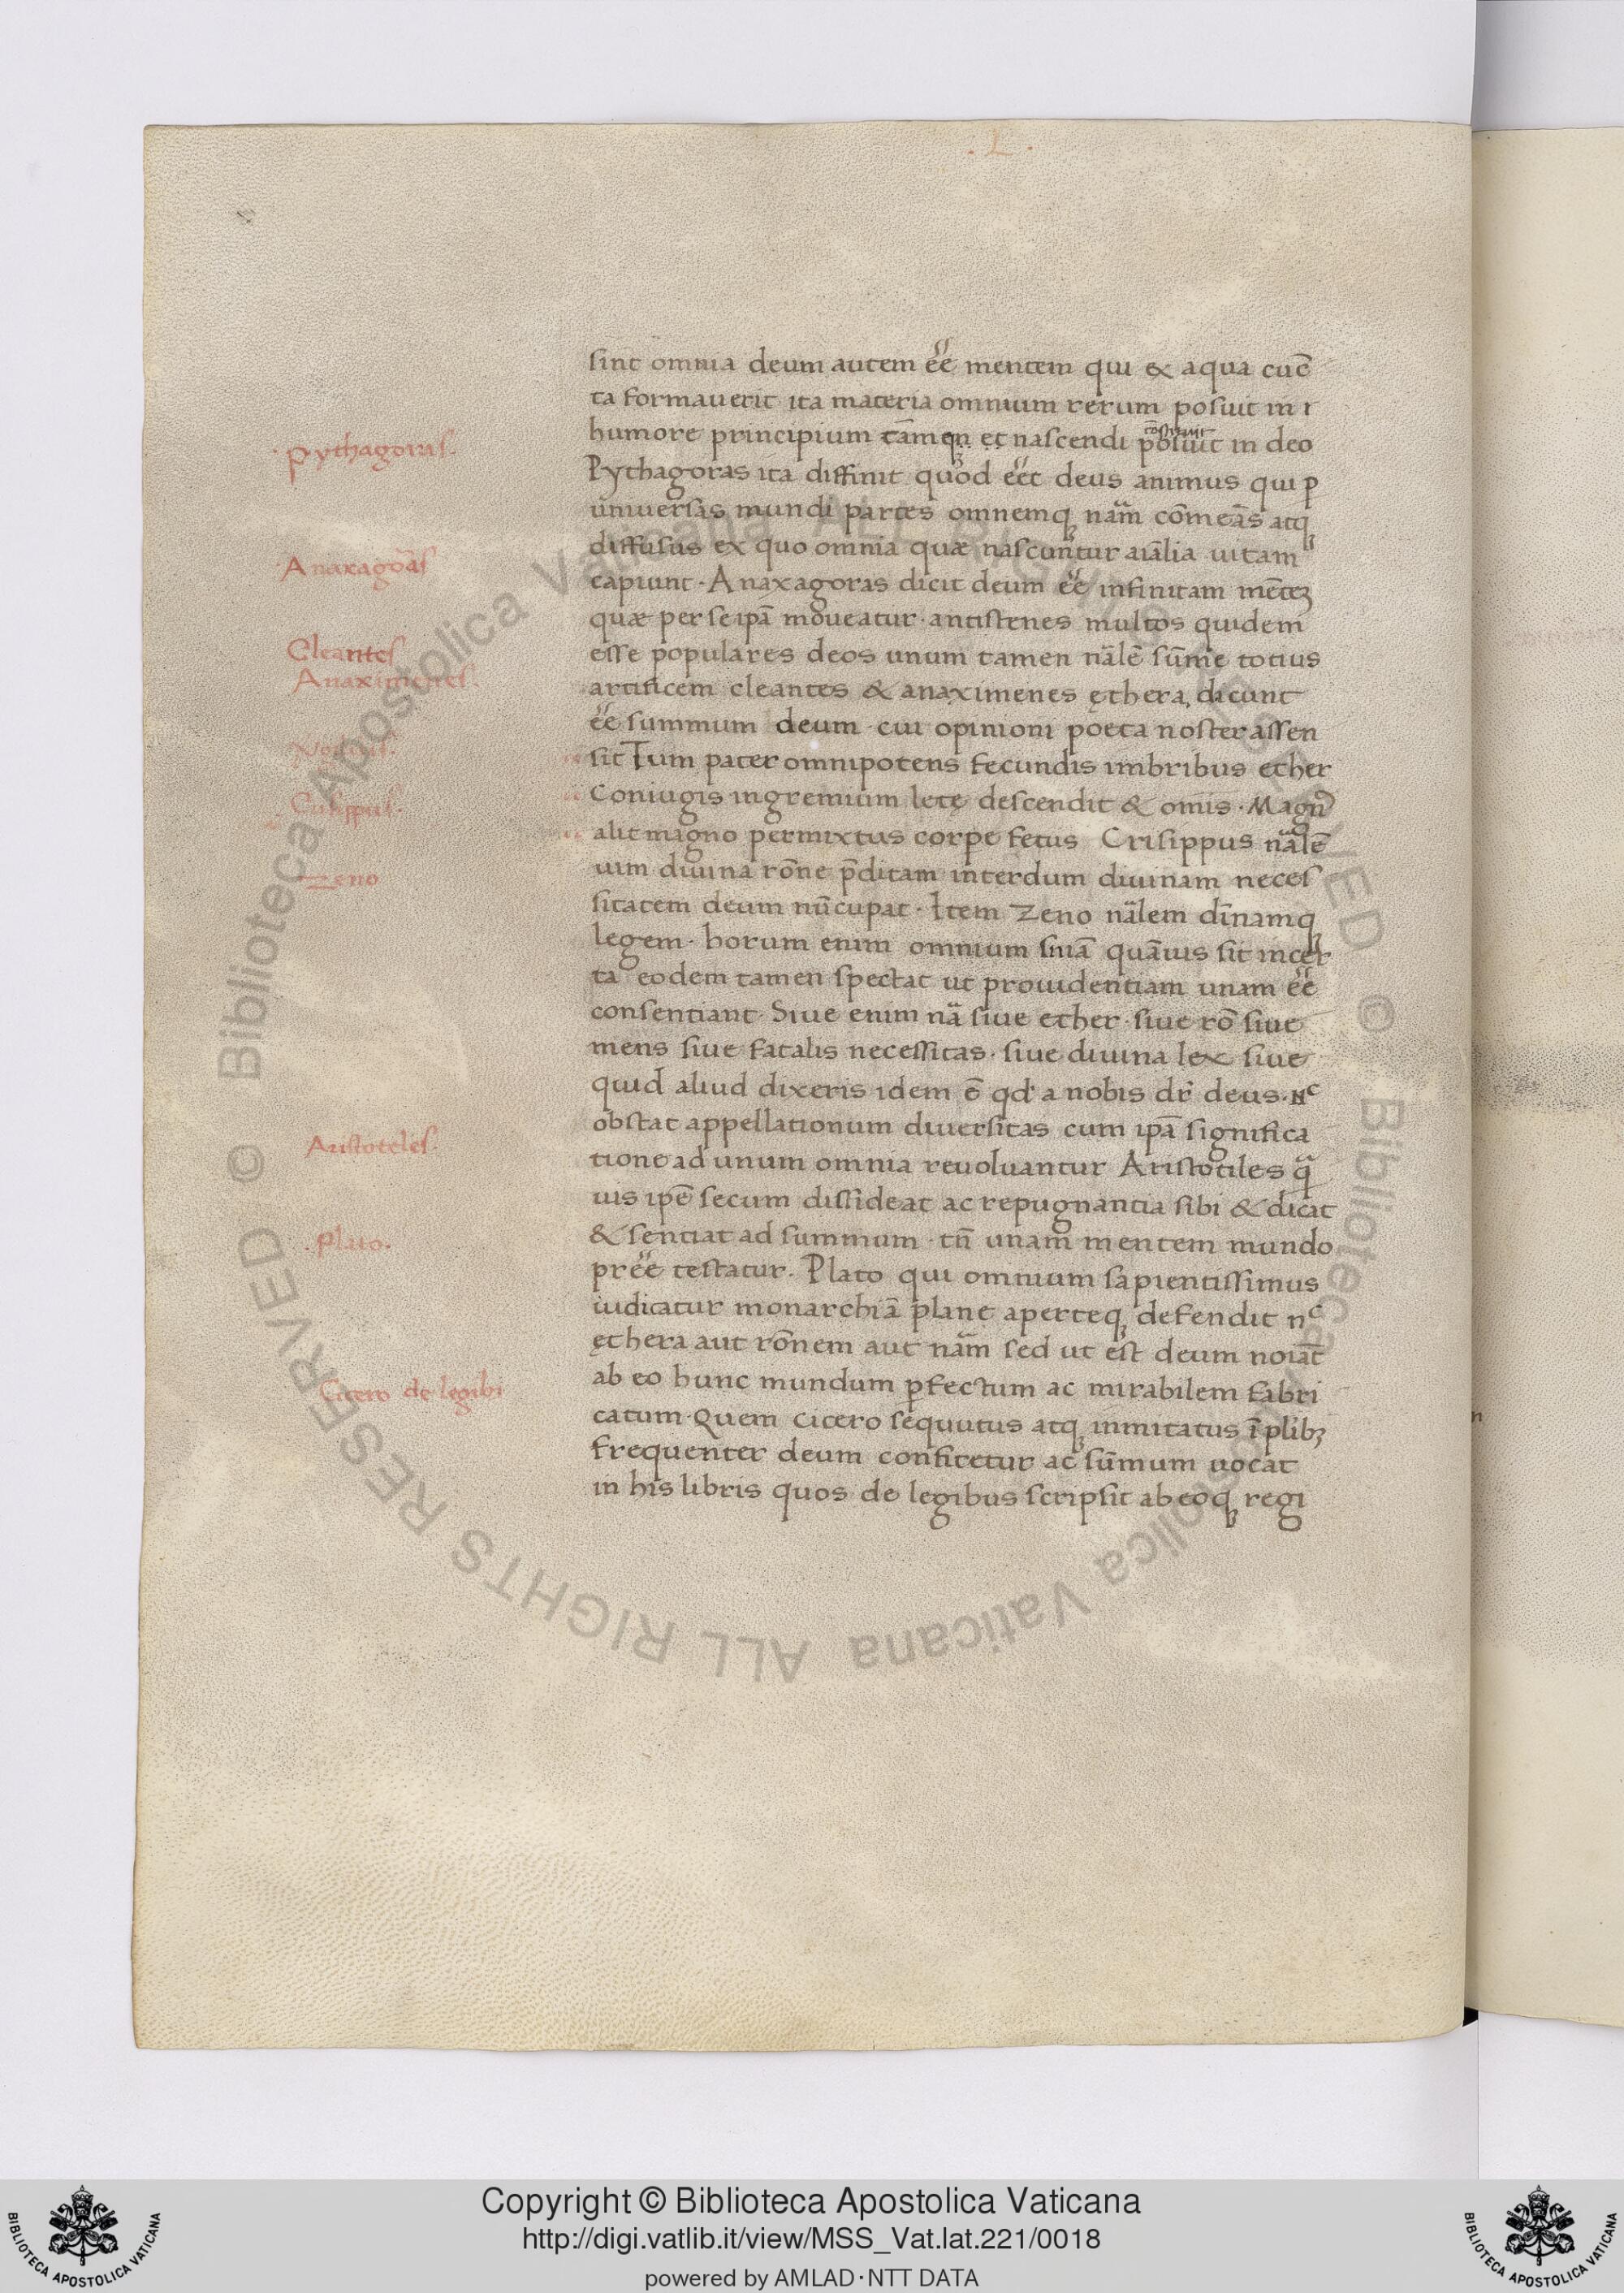 . L .
sint omnia deum autem ee̋ mentem qui ex aqua cūc
ta formauerit ita materia omnium rerum posuit in
humore principium tam̄ en et nascendi posuit in deo
constituit
Pythagoras ita diffinit quod ee̋t deus animus qui ꝑ
uniuersas mundi partes omnemqꝫ nām cōmeās atqꝫ
diffusus ex quo omnia quæ nascuntur aīalia uitam
capiunt · Anaxagoras dicit deum ee̋ infinitam mētēꝫ
quæ per se ip̄ā moueatur · antistenes multos quidem
esse populares deos unum tamen nāle̅ sūme totius
artificem cleantes & anaximenes ęthera dicunt
ee̋ summum deum · cui opinioni poeta noster assen
sit Tum pater omnipotens fecundis imbribus ether
Coniugis in gremium letę descendit & omīs · Magnꝰ
alit magno permixtus corpe fetus Crisippus nāle̅
uim diuina rōne p̄ditam interdum diuinam neces
sitatem deum nūcupat · Item Zeno nālem diūnamqꝫ
legem · horum enim omnium sn̄iā quāuis sit incer
ta eodem tamen spectat ut prouidentiam unam ee̋
consentiant · Siue enim nā siue ether · siue rō siue
mens siue fatalis necessitas · siue diuina lex siue
quid aliud dixeris idem ē qd' a nobis dr̄ deus · Nᶜ
obstat appellationum diuersitas cum ip̄ā significa
tione ad unum omnia reuoluantur Aristotiles qᵃ̄
uis ip̄e secum dissideat ac repugnantia sibi & dicat
& sentiat ad summum · tn̄ unam mentem mundo
pree̋ testatur · Plato qui omnium sapientissimus
iudicatur monarchiā plane aperteqꝫ defendit nᶜ
ęthera aut rōnem aut nām sed ut est deum noīat
ab eo hunc mundum ꝑfectum ac mirabilem fabri
catum · Quem cicero sequutus atqꝫ immitatus ī plībꝫ
frequenter deum confitetur ac sūmum uocat
in his libris quos de legibus scripsit ab eoqꝫ regi
· Pythagoras ·
Anaxagōas
Cleantes
Anaximenes ·
Crisippus ·
Zeno
Aristoteles ·
. Plato .
Cicero de legibꝫ
© Biblioteca Apostolica Vaticana ALL RIGHTS RESERVED © Biblioteca Apostolica Vaticana ALL RIGHTS RESERVED
Copyright © Biblioteca Apostolica Vaticana
http://digi.vatlib.it/view/MSS_Vat.lat.221/0018
powered by AMLAD·NTT DATA
BIBLIOTECA APOSTOLICA VATICANA
BIBLIOTECA APOSTOLICA VATICANA